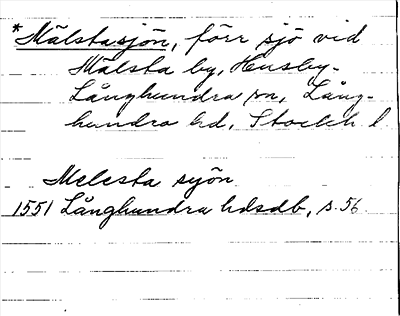 *Mälstasjön, förr sjö vid
Mälsta by, Husby-
Långhundra sn, Lång-
hundra hd, Stockh l
Melesta syön
1551 Långhundra hdsdb, s. 56